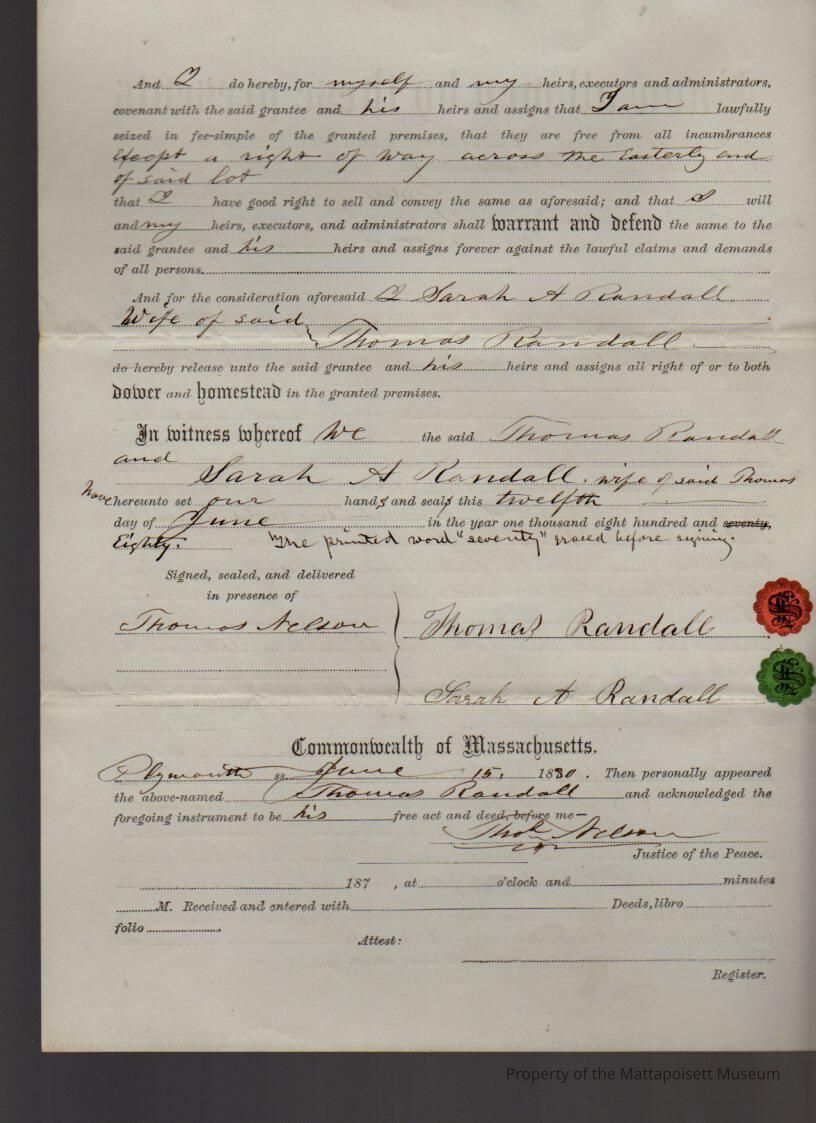 And I do hereby, for myself and my heirs, executors and administrators,
covenant with the said grantee and his heirs and assigns that I am lawfully
seized in fee-simple of the granted premises, that they are free from all incumbrances
Except a right of way across the Easterly end
of said lot
that I have good right to sell and convey the same as aforesaid; and that I will
and my heirs, executors, and administrators shall warrant and defend the same to the
said grantee and his heirs and assigns forever against the lawful claims and demands
of all persons.
And for the consideration aforesaid I Sarah A Randall
Wife of said
Thomas Randall
do hereby release unto the said grantee and his heirs and assigns all right of or to both
dower and homestead in the granted premises.
In witness whereof We the said Thomas Randall
and
Sarah A Randall, wife of said Thomas
have hereunto set our hands and seals this twelfth
day of June in the year one thousand eight hundred and seventy,
Eighty. The printed word "seventy" erased before signing.
Signed, sealed, and delivered
in presence of
Thomas Nelson
Thomas Randall
Sarah A Randall
Commonwealth of Massachusetts.
Plymouth ss. June 15, 1880. Then personally appeared
the above-named Thomas Randall and acknowledged the
foregoing instrument to be his free act and deed, before me—
Thos Nelson
Justice of the Peace.
187 , at o'clock and minutes
M. Received and entered with Deeds, libro
folio
Attest:
Register.
Property of the Mattapoisett Museum